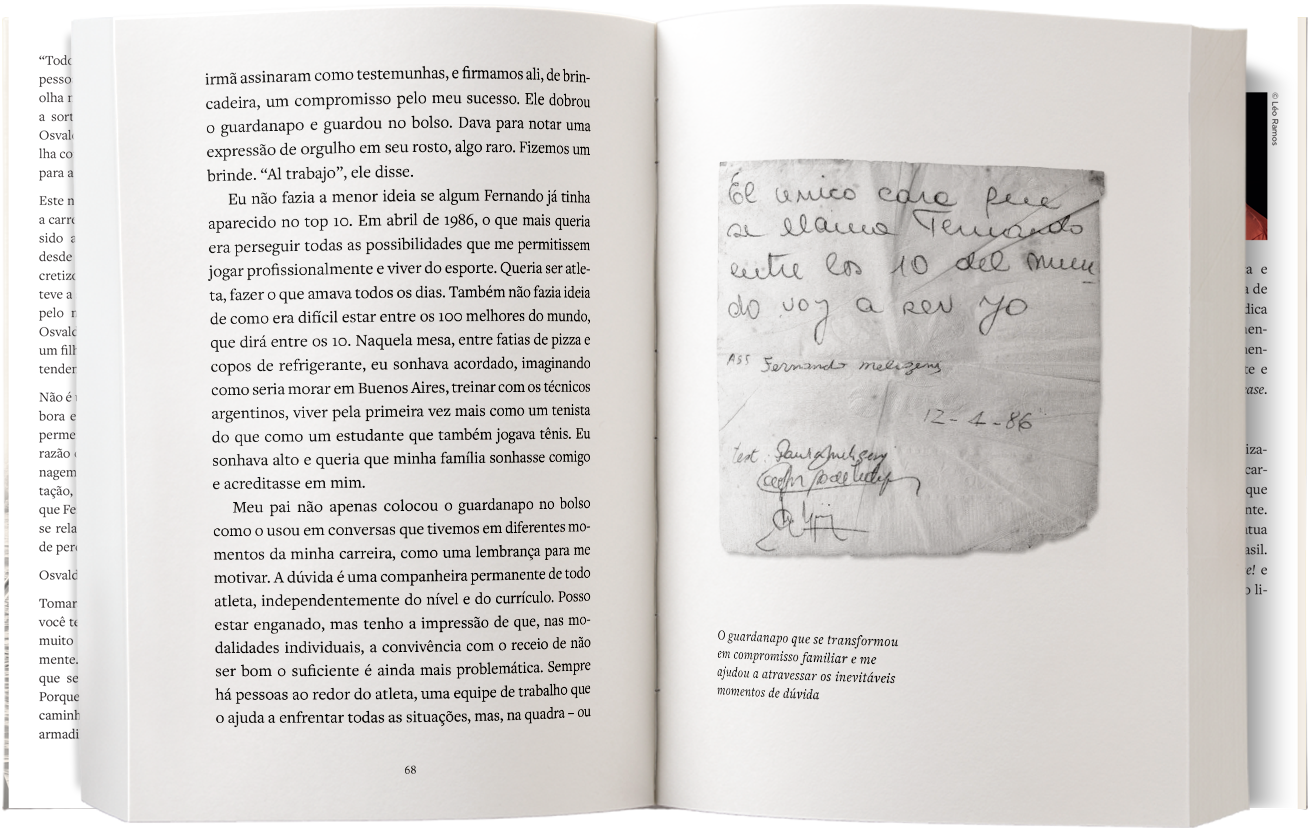 “Todo
pesso
olha
a sort
Osval
lha co
para a
Este n
a carr
sido a
desde
cretiz
teve a
pelo
Osvald
um filh
tender
Não é
bora e
perme
razão
nagem
tação,
que Fe
se rela
de per
Osvald
Tomar
você te
muito
mente.
que se
Porque
caminh
armadi
irmã assinaram como testemunhas, e firmamos ali, de brin-
cadeira, um compromisso pelo meu sucesso. Ele dobrou
o guardanapo e guardou no bolso. Dava para notar uma
expressão de orgulho em seu rosto, algo raro. Fizemos um
brinde. “Al trabajo”, ele disse.
Eu não fazia a menor ideia se algum Fernando já tinha
aparecido no top 10. Em abril de 1986, o que mais queria
era perseguir todas as possibilidades que me permitissem
jogar profissionalmente e viver do esporte. Queria ser atle-
ta, fazer o que amava todos os dias. Também não fazia ideia
de como era difícil estar entre os 100 melhores do mundo,
que dirá entre os 10. Naquela mesa, entre fatias de pizza e
copos de refrigerante, eu sonhava acordado, imaginando
como seria morar em Buenos Aires, treinar com os técnicos
argentinos, viver pela primeira vez mais como um tenista
do que como um estudante que também jogava tênis. Eu
sonhava alto e queria que minha família sonhasse comigo
e acreditasse em mim.
Meu pai não apenas colocou o guardanapo no bolso
como o usou em conversas que tivemos em diferentes mo-
mentos da minha carreira, como uma lembrança para me
motivar. A dúvida é uma companheira permanente de todo
atleta, independentemente do nível e do currículo. Posso
estar enganado, mas tenho a impressão de que, nas mo-
dalidades individuais, a convivência com o receio de não
ser bom o suficiente é ainda mais problemática. Sempre
há pessoas ao redor do atleta, uma equipe de trabalho que
o ajuda a enfrentar todas as situações, mas, na quadra – ou
68
El unico cara que
se llama Fernando
entre los 10 del mun
do voy a ser yo
ASS Fernando meligeni
12-4-86
test.
O guardanapo que se transformou
em compromisso familiar e me
ajudou a atravessar os inevitáveis
momentos de dúvida
© Léo Ramos
a e
de
dica
nen-
nen-
e e
ase.
iza-
car-
que
nte.
tua
asil.
e! e
li-